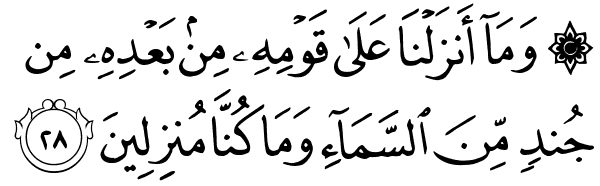 ۞ وَمَآ أَنزَلْنَا عَلَىٰ قَوْمِهِۦ مِنۢ بَعْدِهِۦ مِن
جُندٍ مِّنَ ٱلسَّمَآءِ وَمَا كُنَّا مُنزِلِينَ ٢٨